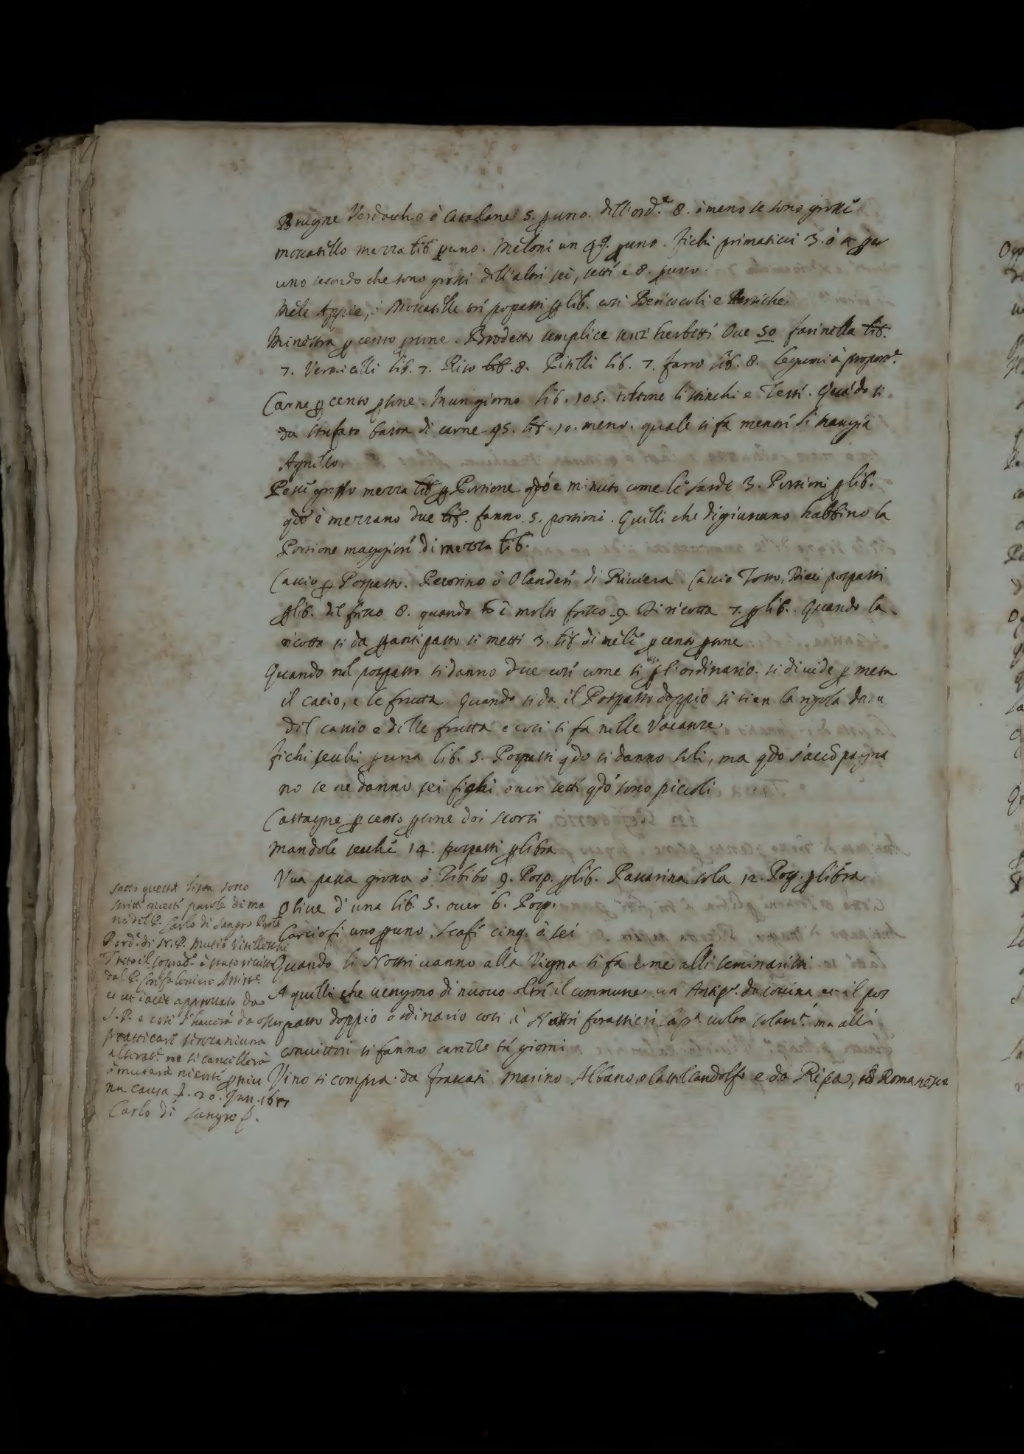 Brugne Verdacchie ò Catalane 5. p uno. dell'ord.e 8. ò meno se sono grosse
moscatello mezza lib. p uno. Meloni un p uno. fichi primaticci 3. ò 4. per
uno secondo che sono grossi dell'altri sei, setti e 8. p uno.
Mele Appie, Moscatelle pospasti p lib. così Bericocoli e Persiche.
Minestra p cento p sone. Brodetto semplice senz'herbette Ove 50 farinella lib.
7. Vermicelli lib. 7. Riso lib. 8. Piselli lib. 7. farro lib. 8. legumi à propor.e
Carne p cento p sone. In un giorno lib. 105. toltone li stinchi e Teste. Quãdo si
dà stufato basta di carne 95. lib. 10. meno. quale si fa mentre si mangia
Agnello.
Pesce grosso mezza lib. p Portione qdo è minuto come le sarde 3. Portioni p lib.
qdo è mezzano due lib. fanno 5. portioni. Quelli che digiunano habbino la
Portione maggiore di mezza lib.
Cascio p Pospasto. Pecorino ò Olandese di Riviera. Cascio Tosto. Dieci pospasti
p lib. del fresco 8. quando è molto fresco. 9 Di ricotta 7. p lib. Quando la
ricotta si da p antipasto si mette 3. lib. di mele p cento p sone
Quando nel pospasto si danno due cose come si p l'ordinario. si divide p metà
il cacio, e le frutta. Quando si da il Pospasto doppio si tien la regola
del cascio e delle frutta e così si fa nelle Vacanze.
fichi secchi lib. 5. Pospasti qdo si danno soli, ma qdo s'accõpagna
no se ne danno sei fighi over setti qdo sono piccoli
Castagne p cento p sone doi scorzi
Mandole secche 14. pospasti p libra
Vua passa grossa ò Zibibo 9. Posp. p lib. Passarina sola 12. Posp. p libra
Olive d'una lib. 5. over 6. Posp.
Carciofi uno p uno. Scafi cinq. ò sei
Quando li Nostri vanno alla Vigna si fa come alli seminaristi
A quelli che vengono di nuovo oltre il commune un Antip.o da cocina et il pos
pasto doppio ordinario così à Nostri forastieri ma alli
convittori si fanno carezze tre giorni
Vino si compra da frascati. Marino Albano, o Castelcandolfo e da Ripa, Romanesco
sotto questa lista sono
scritte queste parole di ma
no del P. Carlo di Sangro
di N. P. Mutio Vitelleschi
Tutto il soprad.o è stato
dal P.
approvato da
S. P. e così s'haverà da osservare
praticare senza niuna
alterat.ne nè si cancellerà
ò muterà niente p niu
na causa 20.
Carlo di Sangro